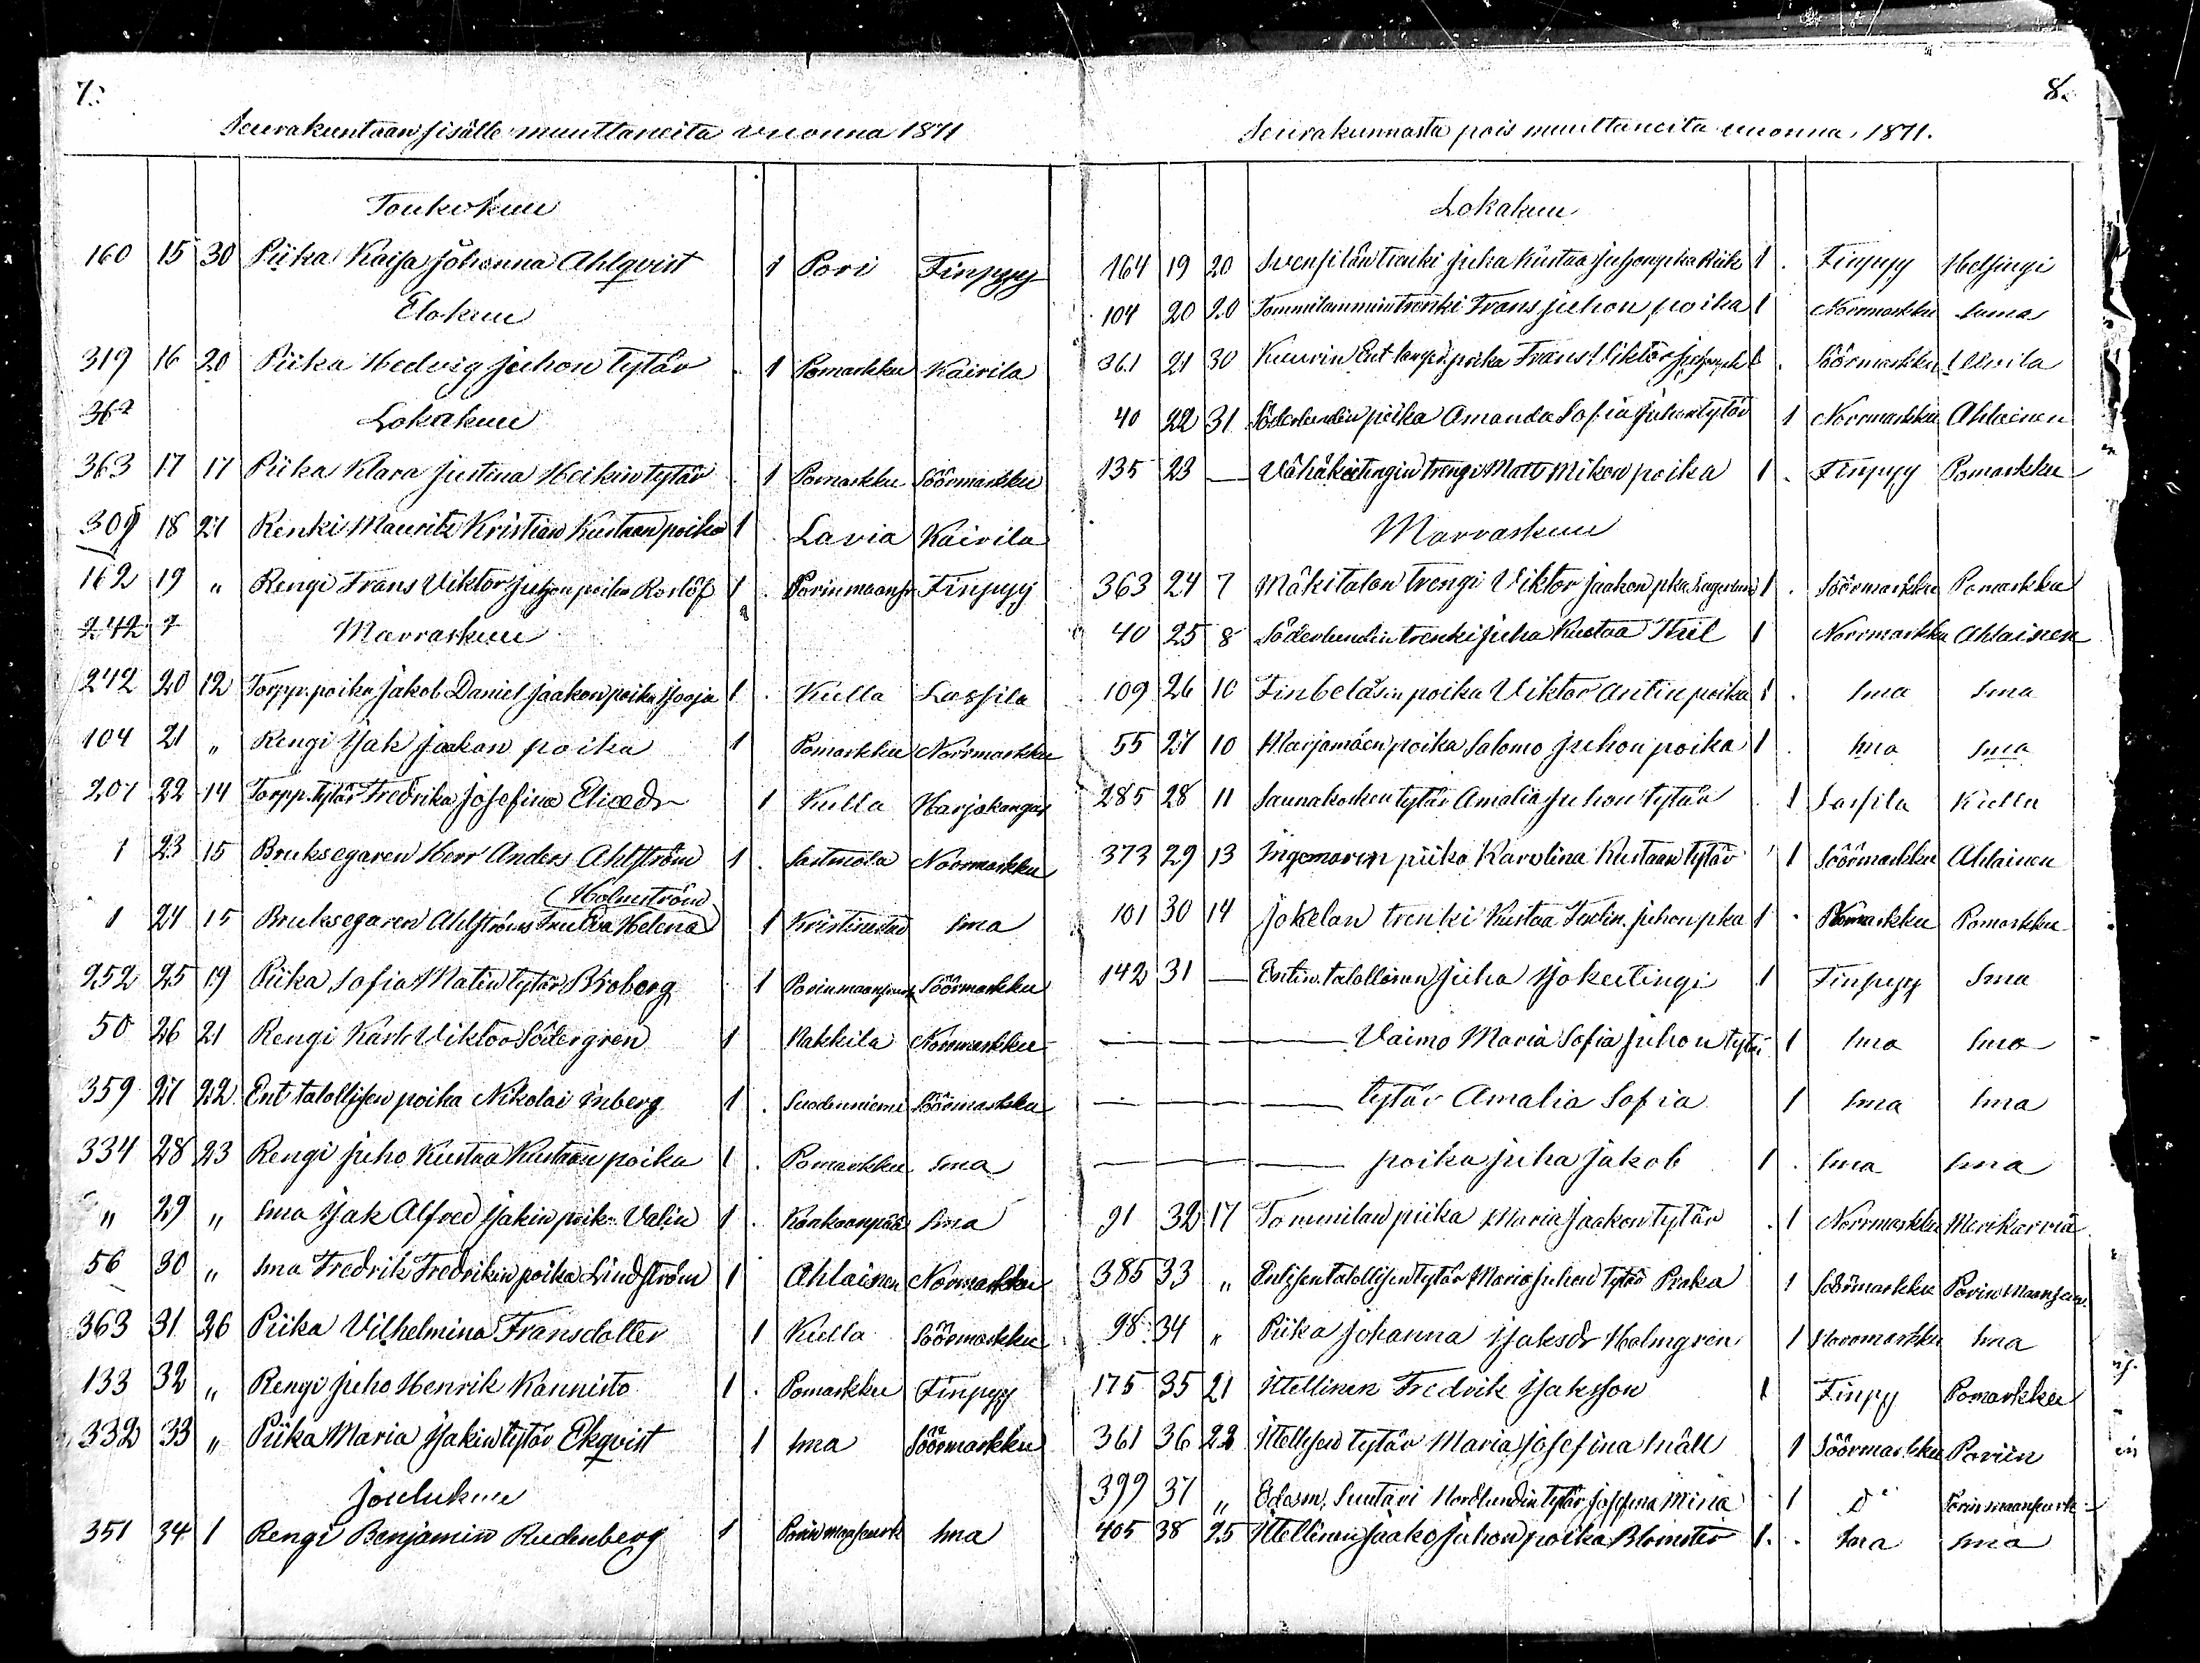 7.
Seurakuntaan sisälle muuttaneita vuonna 1871
Toukokuu
160 15 30 Piika Kaisa Johanna Ahlqvist 1 Pori Finpyy
Elokuu
319 16 20 Piika Hedvig Juhon tytär 1 Pomarkku Kairila
362 Lokakuu
363 17 17 Piika Klara Justina Heikin tytär 1 Pomarkku Söörmarkku
309 18 27 Renki Mauritz Kristian Kustaan poika 1 Lavia Kairila
162 19 " Rengi Frans Viktor Juhon poika Roslöf 1 Porin maans Finpyy
242 Marraskuu
242 20 12 Torpp. poika Jakob Daniel Jaakon poika 1 Kulla Lassila
104 21 " Rengi Isak Jaakon poika 1 Pomarkku Norrmarkku
207 22 14 Torpp. tytär Fredrika Josefina Eliædr 1 Kulla Harjakangas
1 23 15 Bruksegaren Herr Anders Ahlström 1 Sastmola Norrmarkku
Holmström
1 24 15 Bruksegaren Ahlströms Fru Eva Helena 1 Kristinestad sma
252 25 19 Piika Sofia Matin tytär Broberg 1 Porin maanseurk Söörmarkku
50 26 21 Rengi Karl Viktor Södergren 1 Nakkila Norrmarkku
359 27 22 Ent. talollisen poika Nikolai Inberg 1 Suodenniemi Söörmarkku
334 28 23 Rengi Juho Kustaa Kustaan poika 1 Pomarkku sma
" 29 " sma Isak Alfred Isakin poik. Valin 1 Kankaanpää sma
56 30 " sma Fredrik Fredrikin poika Lindström 1 Ahlainen Norrmarkku
363 31 26 Piika Vilhelmina Fransdotter 1 Kulla Söörmarkku
133 32 " Rengi Juho Henrik Kannisto 1 Pomarkku Finpyy
332 33 " Piika Maria Isakin tytär Ekqvist 1 sma Söörmarkku
Joulukuu
351 34 1 Rengi Benjamin Rudenberg 1 Porin maaseurk sma
8.
Seurakunnasta pois muuttaneita vuonna 1871.
Lokakuu
164 19 20 Svensilän trenki Juha Kustaa Juhonpka 1 Finpyy Helsingi
104 20 20 trenki Frans Juhon poika 1 Norrmarkku sama
361 21 30 Kuurin Ent. poika Frans Viktor 1 Söörmarkku Ulvila
40 22 31 Söderlundin piika Amanda Sofia Juhon tytär 1 Norrmarkku Ahlainen
135 23 — Vähäkeitingin trengi Matts Mikon poika 1 Finpyy Pomarkku
Marraskuu
363 24 7 Mäkitalon trengi Viktor Jaakon pka 1 Söörmarkku Pomarkku
40 25 8 Söderlundin trenki Juha Kustaa 1 Norrmarkku Ahlainen
109 26 10 poika Viktor Antin poika 1 sma sma
55 27 10 Marjamäen poika Salomo Juhon poika 1 sma sma
285 28 11 Saunakosken tytär Amalia Juhon tytär 1 Lassila Kulla
373 29 13 Ingemaren piika Karolina Kustaan tytär 1 Söörmarkku Ahlainen
101 30 14 Jokelan trenki Kustaa Juhonpka 1 Pomarkku
142 31 — Entin. talollinen Juha Isokeitingi 1 Finpyy sma
— — — Vaimo Maria Sofia Juhon tytär 1 sma sma
— — — tytär Amalia Sofia 1 sma sma
— — — poika Juha Jakob 1 sma sma
91 32 17 Tommilan piika Maria Jaakon tytär 1 Norrmarkku Merikarvia
385 33 " Entisen talollisen tytär Maria Juhon tytär Praka 1 Söörmarkku Porin maanseur.
98 34 " Piika Johanna Isaksdr Holmgren 1 Norrmarkku sma
175 35 21 Itellinen Fredrik Isaksson 1 Finpy Pomarkku
361 36 22 Itellisen tytär Maria Josefina Snäll 1 Söörmarkku Poriin
399 37 " Edesm. Suutari Nordlundin tytär Josefina Mina 1 Do Porin maanseurk
405 38 25 Itellinen Jaako Juhon poika Blomster 1 sma sma